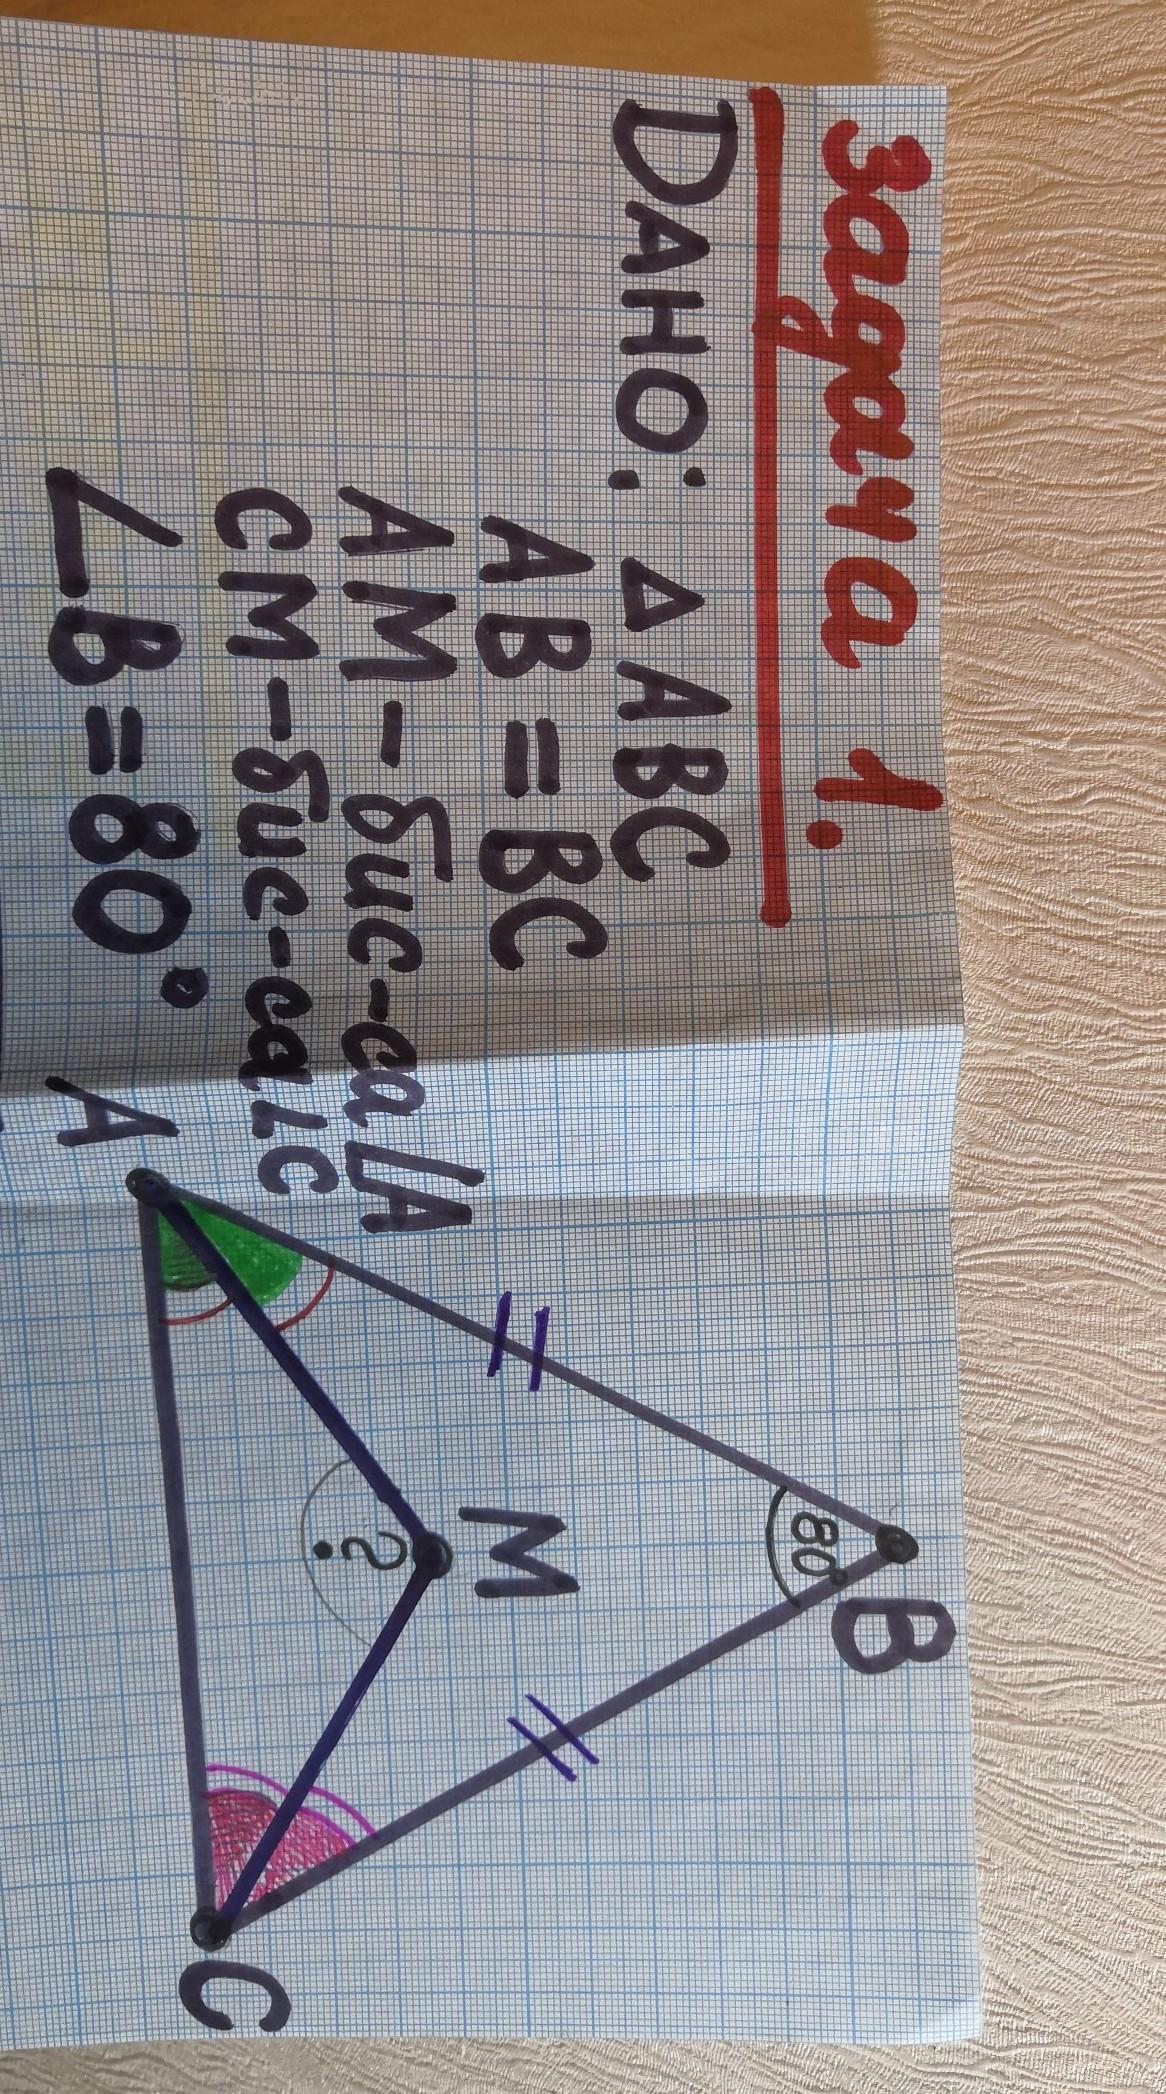 задача 1.
DАНО: △ ABC
AB = BC
AM - бис-са ∠A
CM - бис-са ∠C
∠B = 80°
B
80°
M
?
A
C